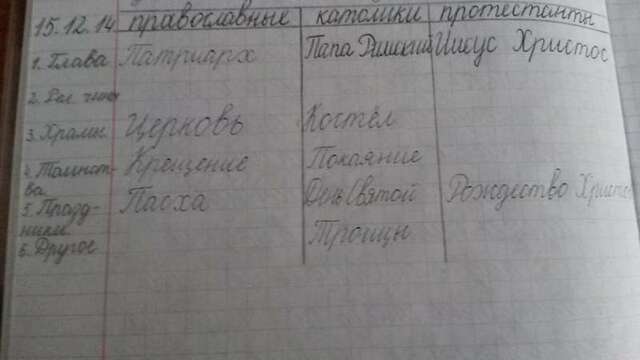 15.12.14 православные католики протестанты
1. Глава Патриарх Папа Римский Иисус Христос
2. Рел. чины
3. Храмы Церковь Костёл
4. Таинст- Крещение Покаяние
ва
5. Празд- Пасха День Святой Рождество Христо
ники Троицы
6. Другое